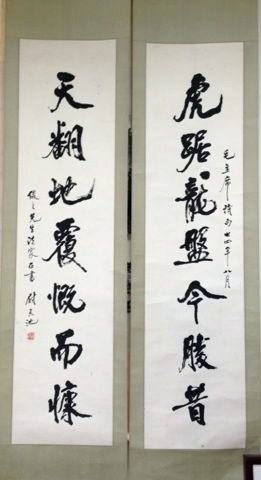 毛主席詩句七四年八月
虎踞龍盤今勝昔
天翻地覆慨而慷
之先生法家正書 尉天池